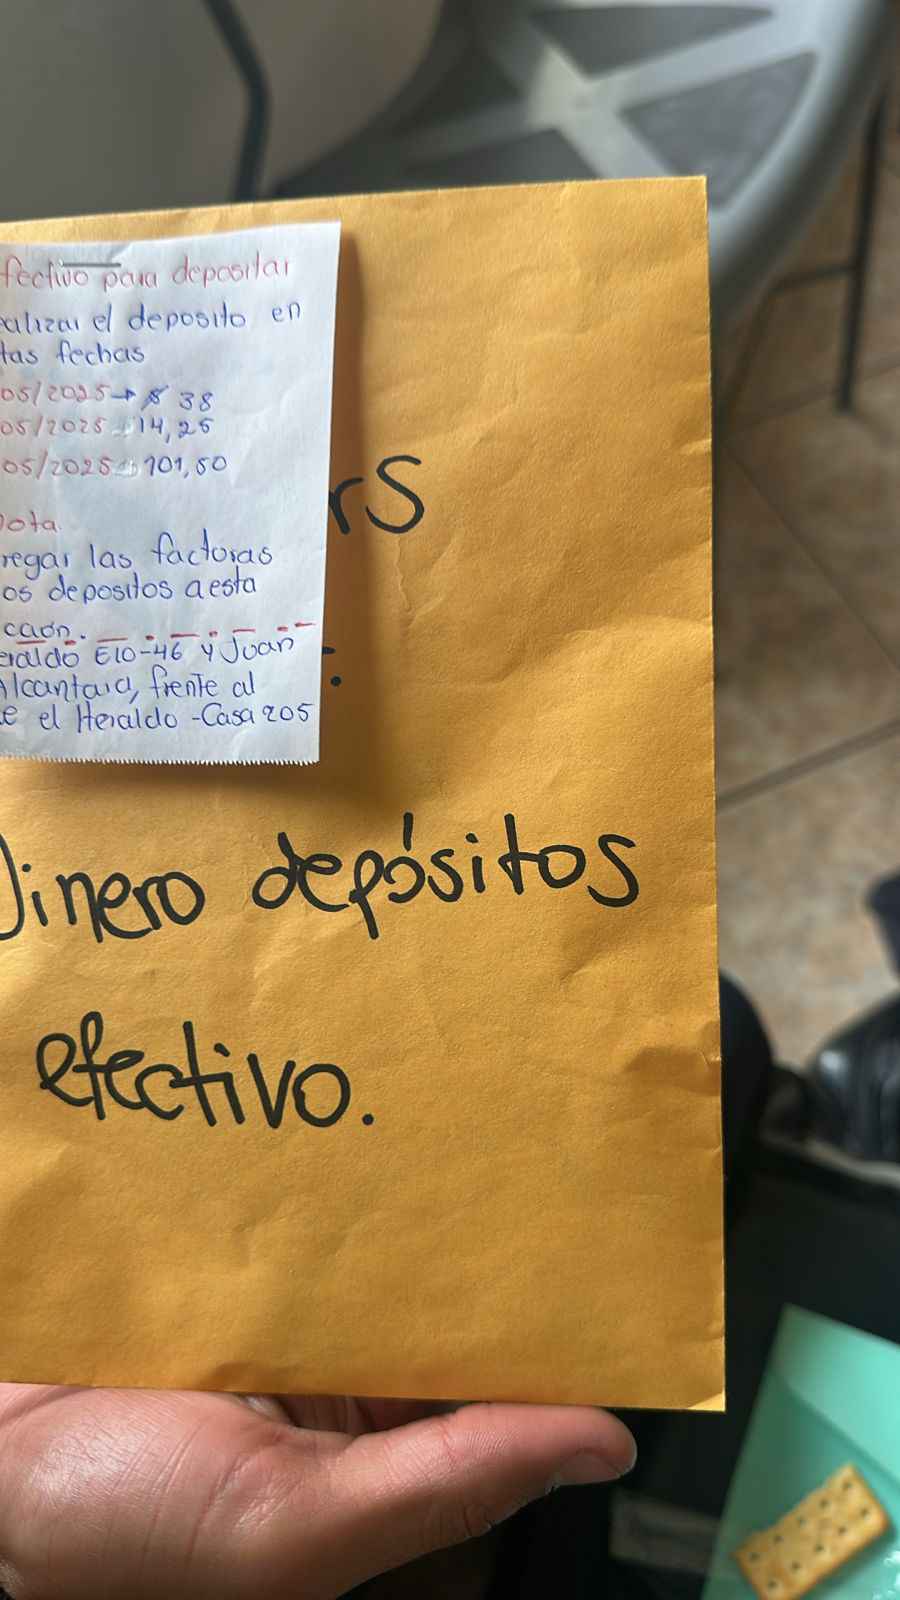 fectivo para depositar
ealizar el deposito en
tas fechas
05/2025→ $ 38
05/2025 → 14,25
05/2025 → 101,50
Nota
regar las facturas
os depositos a esta
cación.
eraldo E10-46 y Juan
Alcantara, frente al
e el Heraldo - Casa 205
rs
:
Dinero depósitos
efectivo.